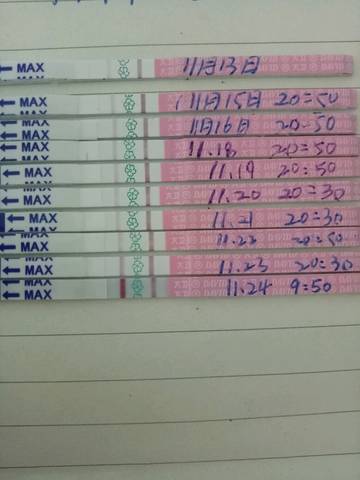 MAX 11月13日
MAX 11月15日 20:50
MAX 11月16日 20:50
MAX 11.18 20:50
MAX 11.19 20:50
MAX 11.20 20:30
MAX 11.21 20:30
MAX 11.22 20:50
MAX 11.23 20:30
MAX 11.24 9:50